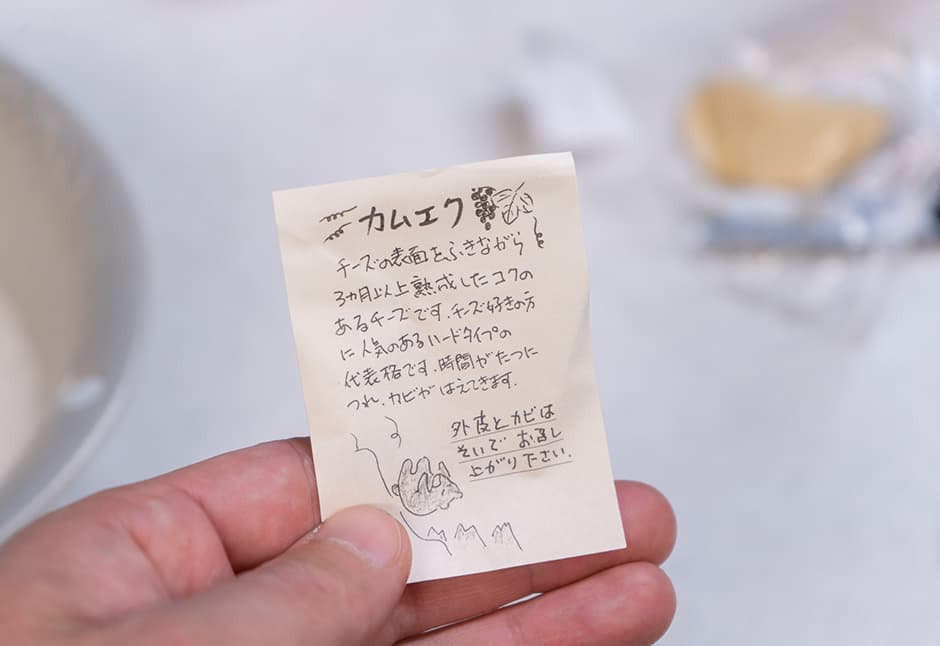 カムエク
チーズの表面をふきながら
3ヵ月以上熟成したコクの
あるチーズです.チーズ好きの方
に人気のあるハードタイプの
代表格です.時間がたつに
つれ,カビがはえてきます.
外皮とカビは
そいでお召し
上がり下さい.